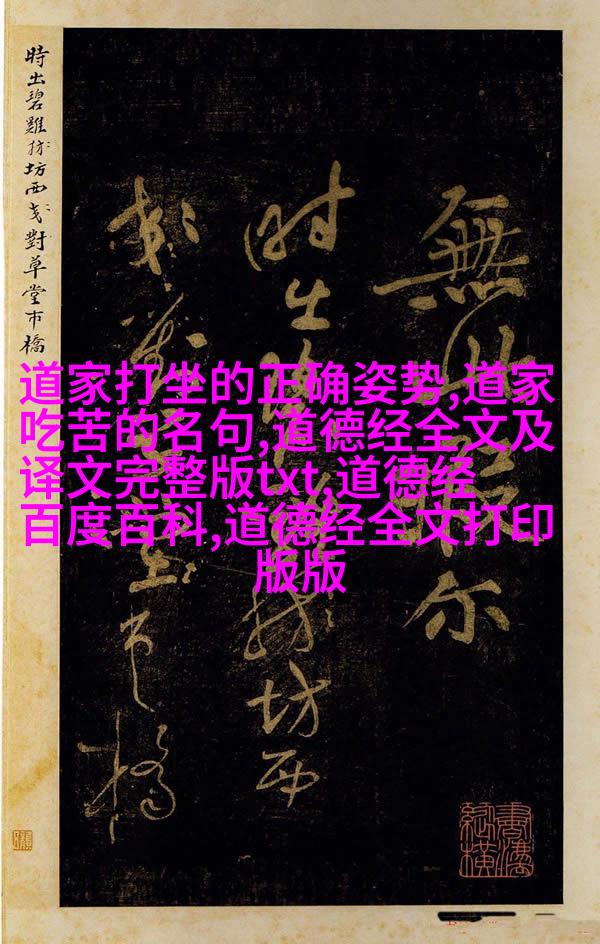 道家打坐的正确姿势,道家
吃苦的名句,道德经全文及
译文完整版txt,道德经
百度百科,道德经全文打印
版版
無此尔
時出坊西
市橋
時出碧雞坊西對草堂市橋